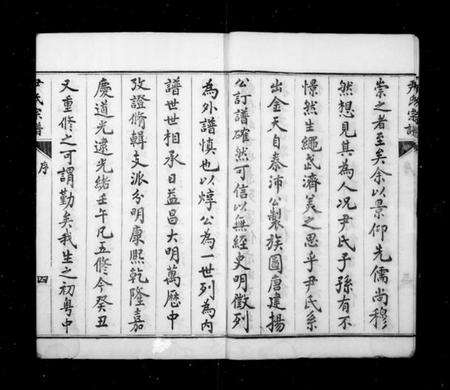 崇之者至矣余以景仰先儒尚穆
然想見其為人况尹氏子孫有不
憬然生繩武濟美之思乎尹氏系
出金天自泰沛公製族圖唐建揚
公訂譜確然可信以無經史明徵列
為外譜慎也以焞公為一世列為内
譜世世相承日益昌大明萬歷中
攷證脩輯支派分明康熙乾隆嘉
慶道光遝光緒壬午凡五修今癸丑
又重脩之可謂勤矣我生之初粤中
尹氏宗譜
序
四